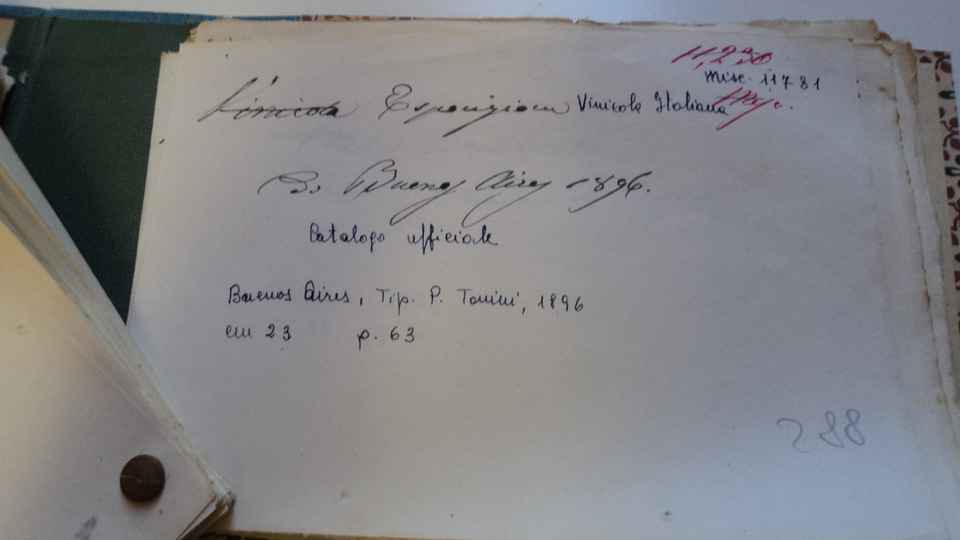 11,250
Misc. 11781
Vinicola Esposizione Vinicola Italiana
Buenos Aires 1896.
Catalogo ufficiale
Buenos Aires, Tip. P. Tonini, 1896
cm 23 p. 63
288